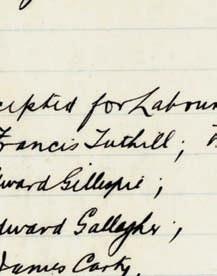 cepted for Labour
Francis Tuthill;
dward Gillespie;
dward Gallagher;
James Carty,